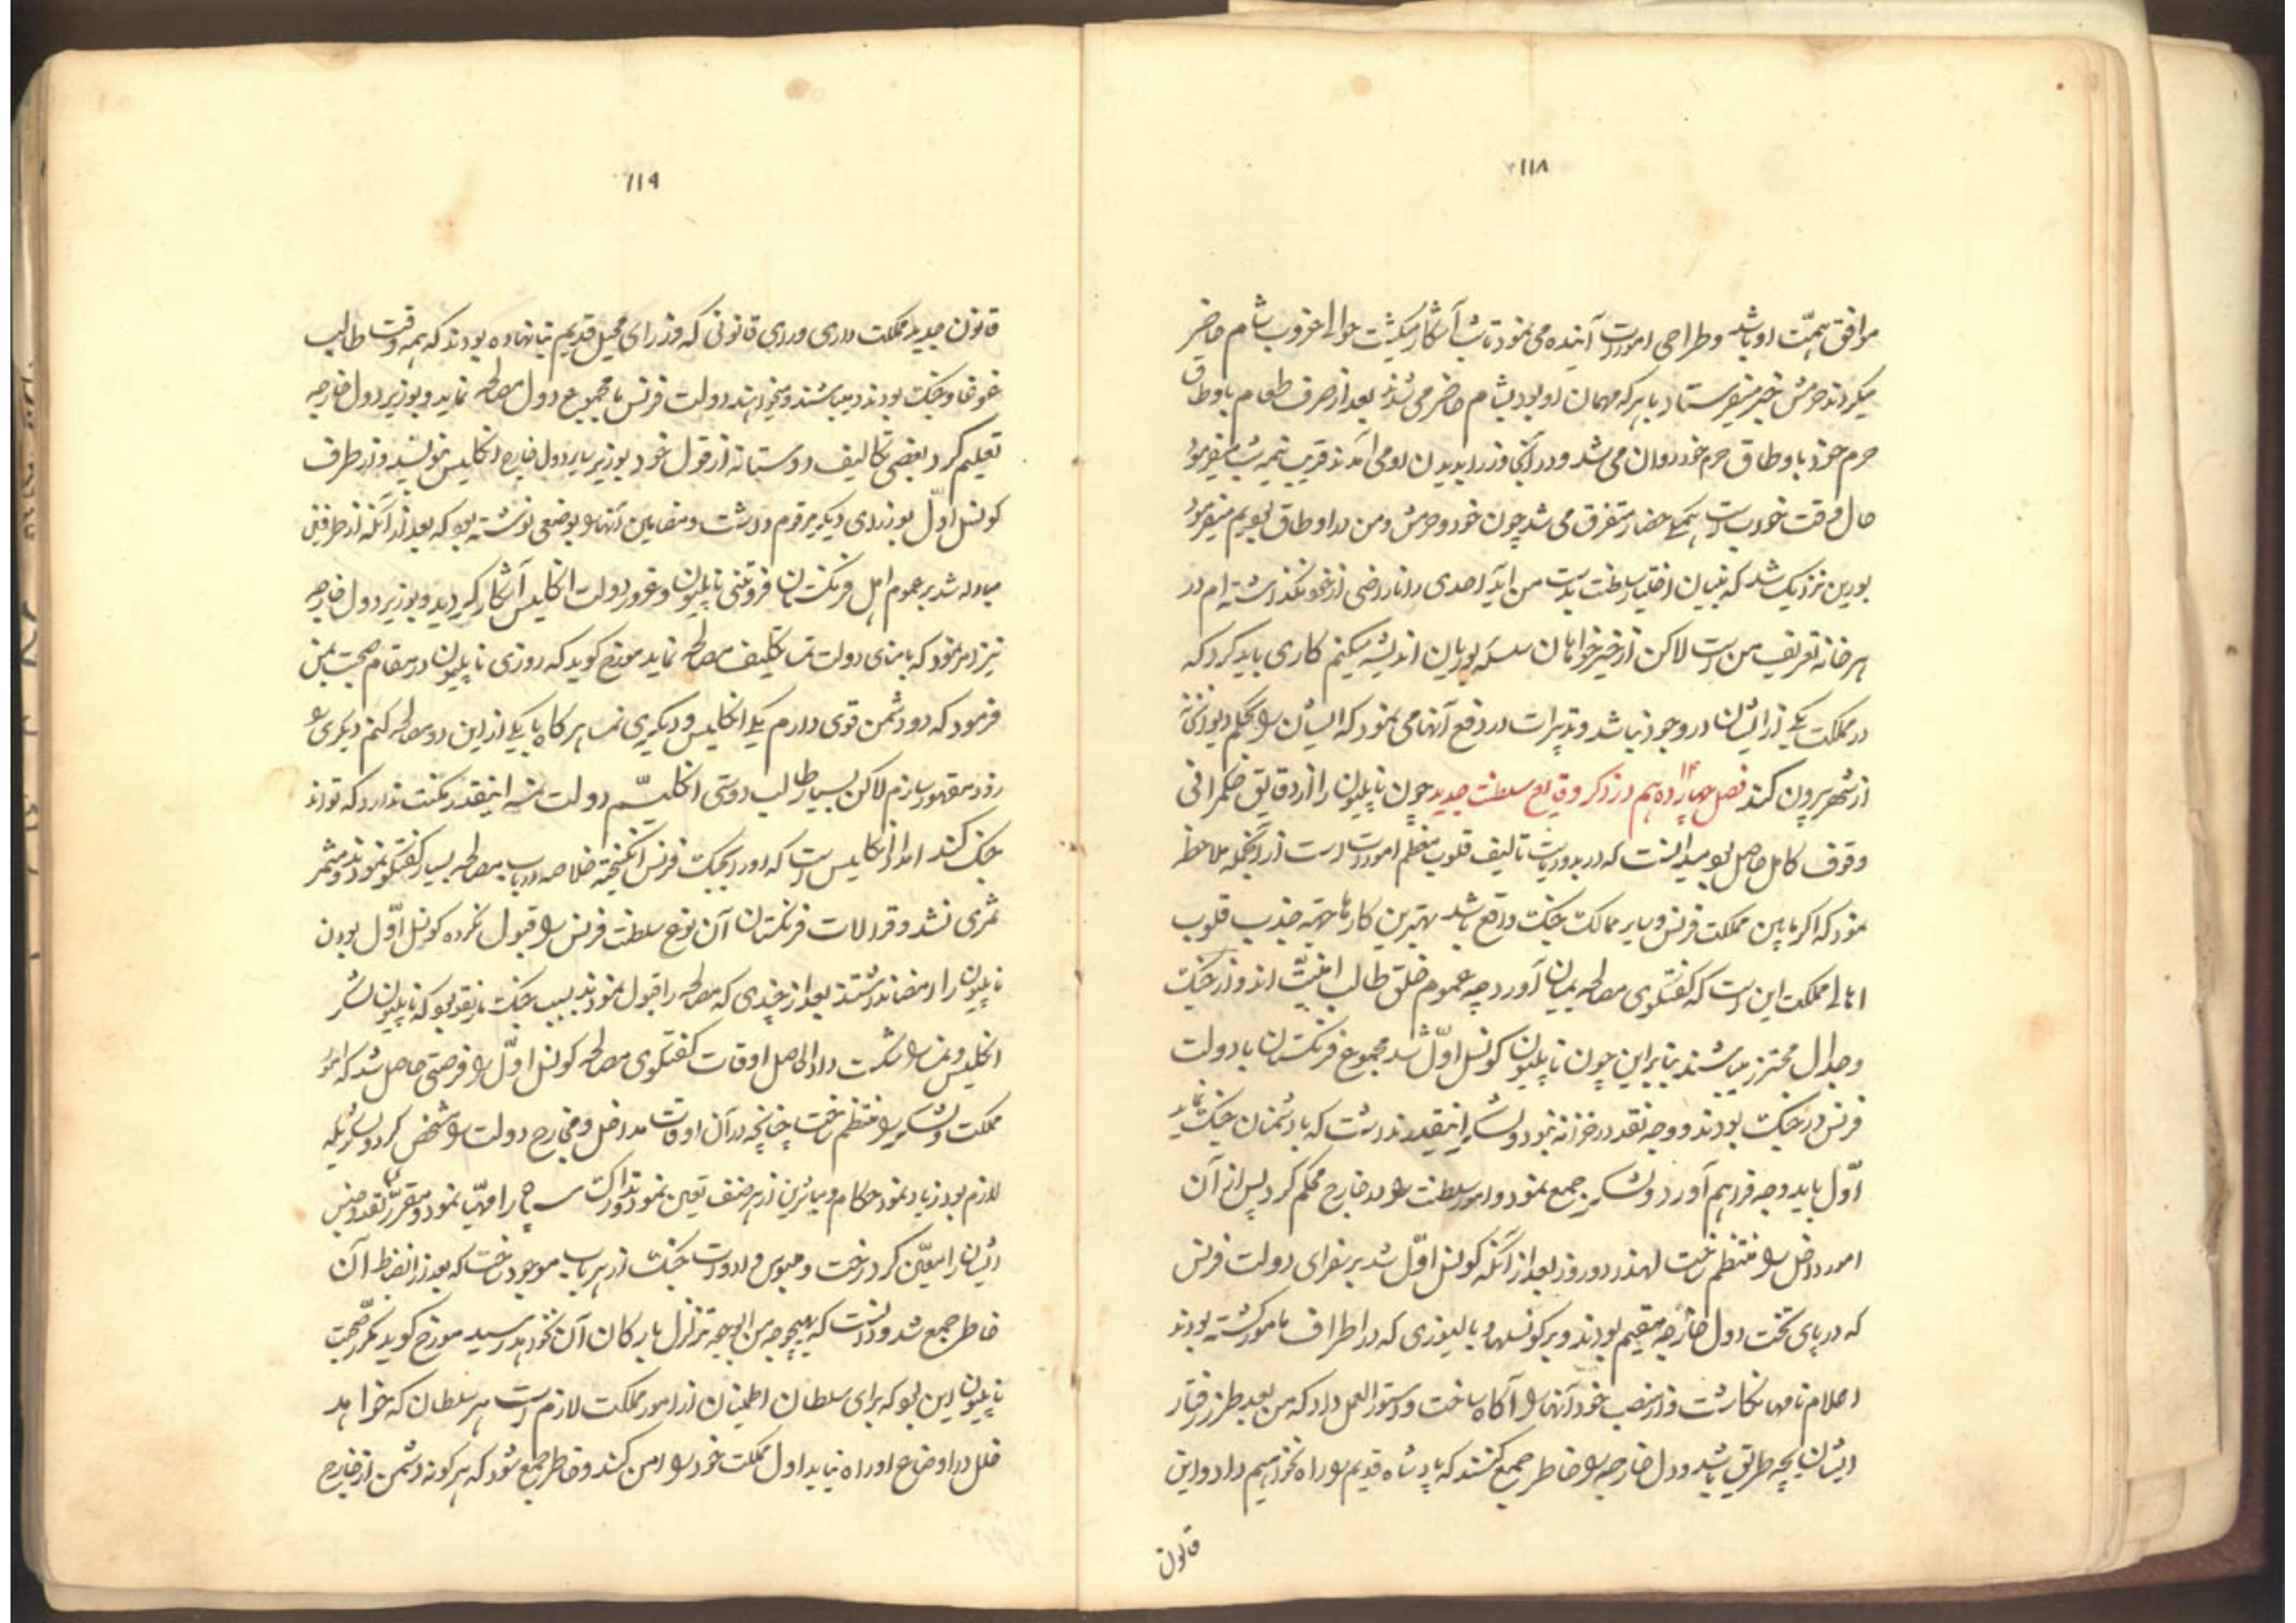 ۱۱۸
موافق همّت او باشد و طراحی امورات آینده می نمود تا شب آشکار میگشت حوالی غروب شام حاضر
میکردند حرمش خبر میفرستاد با هر که مهمان او بود بشام حاضر می شدند بعد از صرف طعام باوطاق
حرم خود باوطاق حرم خود روان می شد و در آنجا وزرا بدیدن او می آمدند قریب نیمه شب میفرمود
حال وقت خواب است همگی حضار متفرق می شد چون خود و حرمش و من در اوطاق بودیم میفرمود
بورین نزدیک شد که بنیان اختیار سلطنت بدست من آید احدی را ناراضی از خود نگذاشته ام در
هر خانه تعریف من است لاکن از خیرخواهان سلسله بوربان اندیشه میکنم کاری باید کرد که
در مملکت یکی از ایشان در وجود نباشد و تدبیرات در دفع آنها می نمود که ایشان را بحکم دیوانخانه
از شهر بیرون کنند فصل چهاردهم ۱۴ در ذکر وقایع سلطنت جدید چون ناپلیون را از دقایق حکمرانی
وقوف کامل حاصل بود میدانست که در بدو ریاست تالیف قلوب معظم امورات است از آنجمله ملاحظه
نمود که اگر مابین مملکت فرنس و سایر ممالک جنگ واقع باشد بهترین کارها جهته جذب قلوب
اهالی مملکت این است که گفتگوی مصالحه بمیان آورد چه عموم خلق طالب امنیّت اند و از جنگ
و جدال محترز میباشند بنابراین چون ناپلیون کونسل اوّل شد مجموع فرنگستان با دولت
فرنس در جنگ بودند و وجه نقد در خزانه نبود و لشکر اینقدر نداشت که با دشمنان جنگ نماید
اوّل باید وجه فراهم آورد و لشکر جمع نمود و امور سلطنت را در خارج محکم کرد پس از آن
امور داخل را منتظم ساخت لهذا دو روز بعد از آنکه کونسل اوّل شد بر سفرای دولت فرنس
که در پای تخت دول خارجه مقیم بودند و بر کونسلها و بالیوزی که در اطراف مامور گشته بودند
اعلام نامها نگاشت و از منصب خود آنها را آگاه ساخت و دستورالعمل داد که من بعد طرز رفتار
ایشان بچه طریق باشد و دول خارجه را خاطر جمع کنند که پادشاه قدیم را راه نخواهیم داد و این
قانون
۱۱۹
قانون جدید مملکت داری ورای قانونی که وزرای محیل قدیم بنا نهاده بودند که همه وقت طالب
غوغا و جنگ بودند میباشند و میخواهند دولت فرنس با مجموع دول مصالحه نماید و بوزیر دول خارجه
تعلیم کرد بعضی تکالیف دوستانه از قول خود بوزیر سایر دول خارجه انگلیس نوشت و از طرف
کونسل اوّل بوزرای دیگر مرقوم داشت و مضامین آنها را بوضعی نوشته بود که بعد از آنکه از طرفین
مبادله شد بر عموم اهل فرنگستان فروتنی ناپلیون و غرور دولت انگلیس آشکار گردید و بوزیر دول خارجه
نیز امر نمود که بامنای دولت نمسا تکلیف مصالحه نماید مورخ گوید که روزی ناپلیون در مقام صحبت بمن
فرمود که دو دشمن قوی دارم یکی انگلیس و دیگری نمسا هرگاه با یکی از این دو مصالحه کنم دیگری را
زود مقهور سازم لاکن بسیار طالب دوستی انگلیسم دولت نمسه اینقدر مکنت ندارد که تواند
جنگ کند اما از انگلیس است که او را بجنگ فرنس انگیخته خلاصه در باب مصالحه بسیار گفتگو نمودند و مثمر
ثمری نشد و قرالات فرنگستان آن نوع سلطنت فرنس را قبول نکرده کونسل اوّل بودن
ناپلیون را امضا نداشتند بعد از چندی که مصالحه را قبول نمودند بسبب جنگ مارنقو بود که ناپلیون لشکر
انگلیس و نمسا را شکست داد الحاصل اوقات گفتگوی مصالحه کونسل اوّل را فرصتی حاصل شد که امور
مملکت و لشکر را منتظم ساخت چنانچه در آن اوقات مداخل و مخارج دولت را مشخص کرد و لشکریکه
لازم بود زیاد نمود حکام و مباشرین از هر صنف تعیین نمود و تدارکات سپاه را مهیّا نمود و مقرری نقد و جنس
ایشان را معیّن کرد رخت و ملبوس و ادوات جنگ از هر باب موجود ساخت که بعد از انضباط آن
خاطر جمع شد و دانست که بهیچوجه من الوجوه تزلزل بارکان آن نخواهد رسید مورخ گوید مکرّر صحبت
ناپلیون این بود که برای سلطان اطمینان از امور مملکت لازم است هر سلطان که خواهد
خلل در اوضاع او راه نیابد اول مملکت خود را امن کند و خاطر جمع شود که هر گونه دشمن از خارج